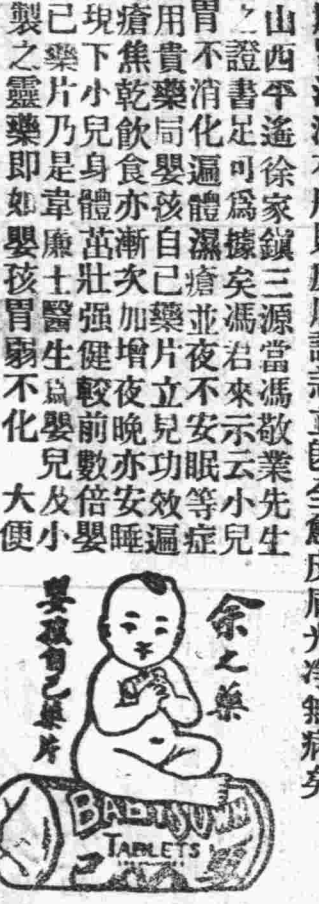 山西平遙徐家鎮三源當馮敬業先生
之證書足可爲據矣馮君來示云小兒
胃不消化遍體濕瘡並夜不安眠等症
用貴藥局嬰孩自己藥片立見功效遍
瘡焦乾飲食亦漸次加增夜晚亦安睡
現下小兒身體茁壯强健較前數倍嬰
已藥片乃是韋廉士醫生爲嬰兒及小
製之靈藥卽如嬰孩胃弱不化 大便
余之藥
嬰孩自己藥片
BABY'S OWN
TABLETS